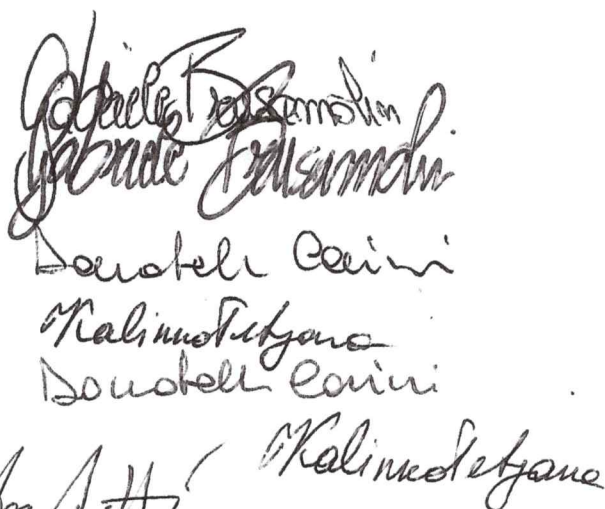 Gabriele Balsamolin
Gabriele Balsamolin
Donatella Carini
Kalinko Tetjana
Donatella Carini
Kalinko Tetjana